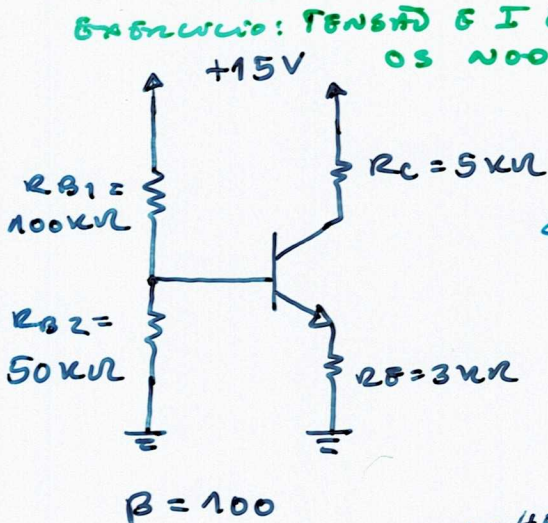 EXERCÍCIO: TENSÃO E I
OS
+15V
RB1 =
100KΩ
RC = 5KΩ
RB2 =
50KΩ
RE = 3KΩ
β = 100